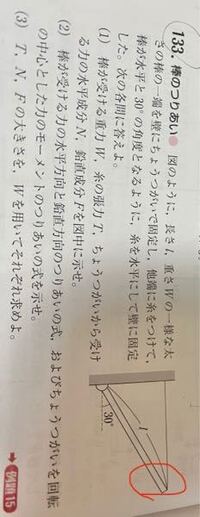 133. 棒のつりあい 図のように，長さl，重さWの一様な太
さの棒の一端を壁にちょうつがいで固定し，他端に糸をつけて，
棒が水平と30°の角度となるように，糸を水平にして壁に固定
した。次の各問に答えよ。
(1) 棒が受ける重力W，糸の張力T，ちょうつがいから受け
る力の水平成分N，鉛直成分Fを図中に示せ。
(2) 棒が受ける力の水平方向と鉛直方向のつりあいの式，およびちょうつがいを回転
の中心とした力のモーメントのつりあいの式を示せ。
(3) T，N，Fの大きさを，Wを用いてそれぞれ求めよ。
➡例題15
l
30°